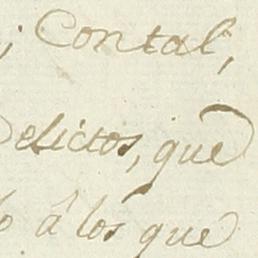 ; Contal,
Delictos, que
o â los que